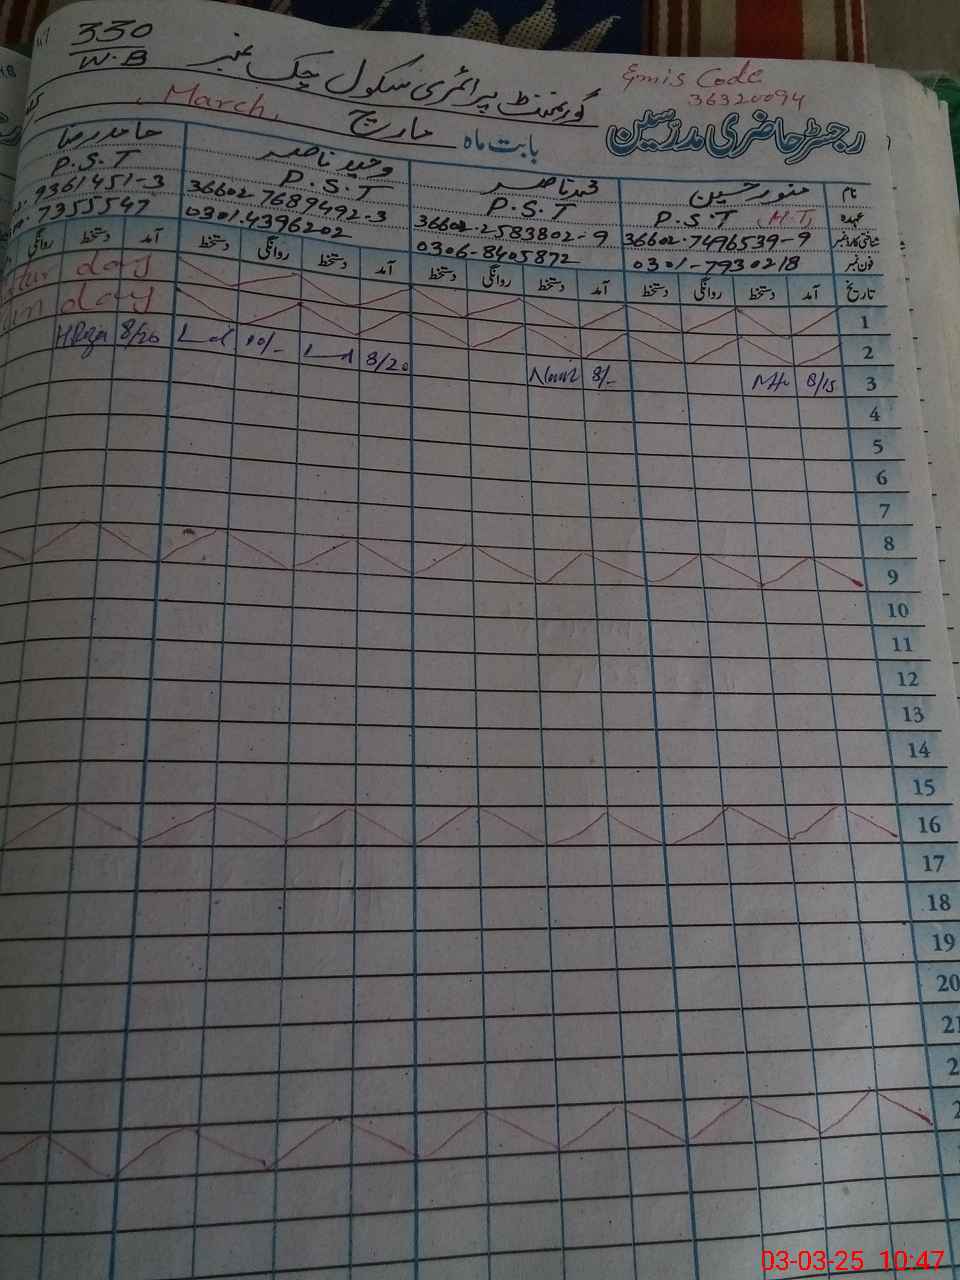 330
W.B
گورنمنٹ پرائمری سکول چک نمبر
Emis Code
36320094
رجسٹر حاضری مدرسین
بابت ماہ مارچ March
نام منور حسین محمد ناصر وحید ناصر حامد رضا
عہدہ P.S.T (H.T) P.S.T P.S.T P.S.T
شناختی کارڈ نمبر 36602-7496539-9 36602-2583802-9 36602-7689492-3 9361451-3
فون نمبر 0301-7930218 0306-8405872 0301-4396202 7355547
تاریخ آمد دستخط روانگی دستخط آمد دستخط روانگی دستخط آمد دستخط روانگی دستخط آمد دستخط روانگی
1 day
2 day
3 8/15 8/- 8/20 10/- 8/20 HRaza
4
5
6
7
8
9
10
11
12
13
14
15
16
17
18
19
20
21
2
2
03-03-25 10:47